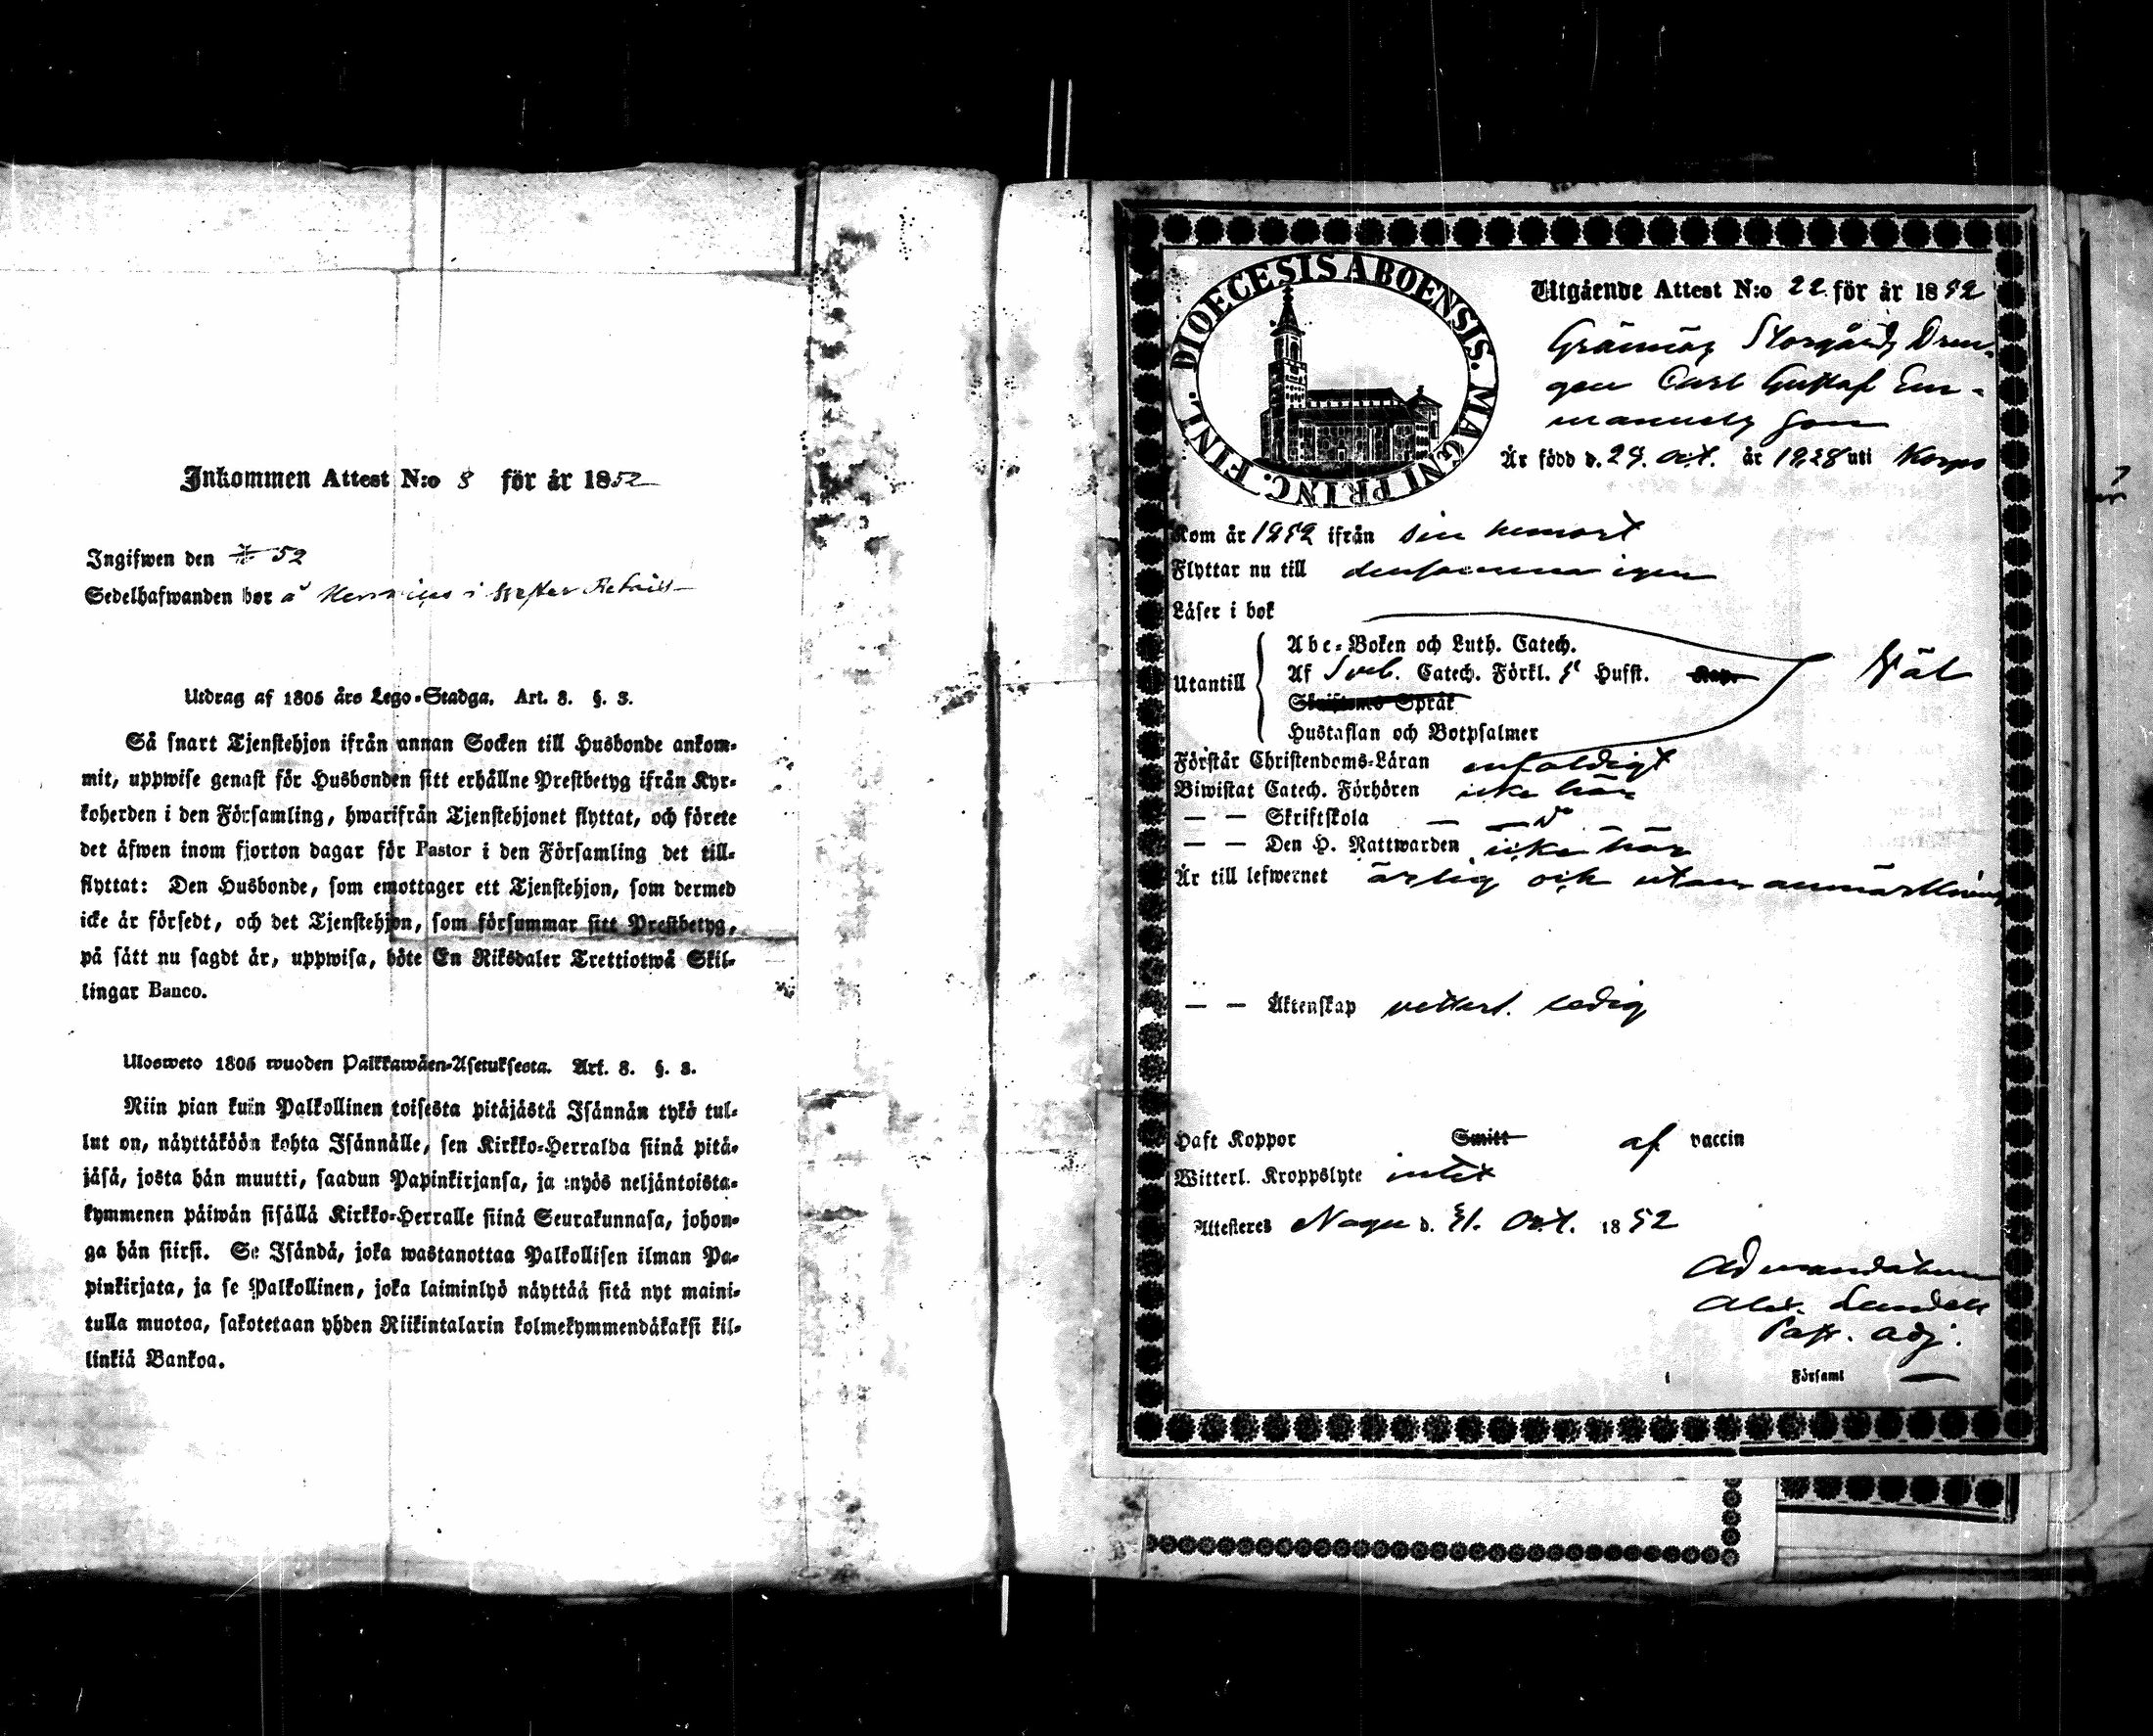 Inkommen Attest N:o 8 för år 1852
Ingifwen den 52
Sedelhafwanden bor å i
Utdrag af 1805 års Lego-Stadga. Art. 8. §. 3.
Så snart Tjenstehjon ifrån annan Socken till Husbonde ankom-
mit, uppwise genast för Husbonden sitt erhållne Prestbetyg ifrån Kyr-
koherden i den Församling, hwarifrån Tjenstehjonet flyttat, och förete
det äfwen inom fjorton dagar för Pastor i den Församling det till-
flyttat: Den Husbonde, som emottager ett Tjenstehjon, som dermed
icke är försedt, och det Tjenstehjon, som försummar sitt Prestbetyg,
på sätt nu sagdt är, uppwisa, böte En Riksdaler Trettiotwå Skil-
lingar Banco.
Ulosweto 1805 wuoden Palkkawäen-Asetuksesta. Art. 8. §. 3.
Niin pian kuin Palkollinen toisesta pitäjästä Isännän tykö tul-
lut on, näyttäköön kohta Isännälle, sen Kirkko-Herralda siinä pitä-
jäsä, josta hän muutti, saadun Papinkirjansa, ja myös neljäntoista-
kymmenen päiwän sisällä Kirkko-Herralle siinä Seurakunnasa, johon-
ga hän siirsi. Se Isändä, joka wastanottaa Palkollisen ilman Pa-
pinkirjata, ja se Palkollinen, joka laiminlyö näyttää sitä nyt maini-
tulla muotoa, sakotetaan yhden Riikintalarin kolmekymmendäkaksi kil-
linkiä Bankoa.
DIOECESIS ABOENSIS. MAGNI PRINC. FINL.
Utgående Attest N:o 22 för år 1852
Gränäs Storgårds Drän-
gen Carl Gustaf Em-
manuels son
Är född d. 29. Oct. år 1828 uti Korpo
Kom år 1852 ifrån sin hemort
Flyttar nu till densamma igen
Läser i bok
Utantill
Abc-Boken och Luth. Catech.
Af Sveb. Catech. Förkl. Husst. Kap.
Skriftens Språk
Hustaflan och Botpsalmer
Väl
Förstår Christendoms-Läran enfaldigt
Biwistat Catech. Förhören icke här
— — Skriftskola — — do
— — Den H. Nattwarden icke här
Är till lefwernet ärlig och utan anmärkning
— — Äktenskap vetterl. ledig
Haft Koppor Smitt af vaccin
Witterl. Kroppslyte intet
Attesteres Nagu d. 31. Oct. 1852
Ad mandatum
Alex. Lundell
Past. adj.
i Församl —